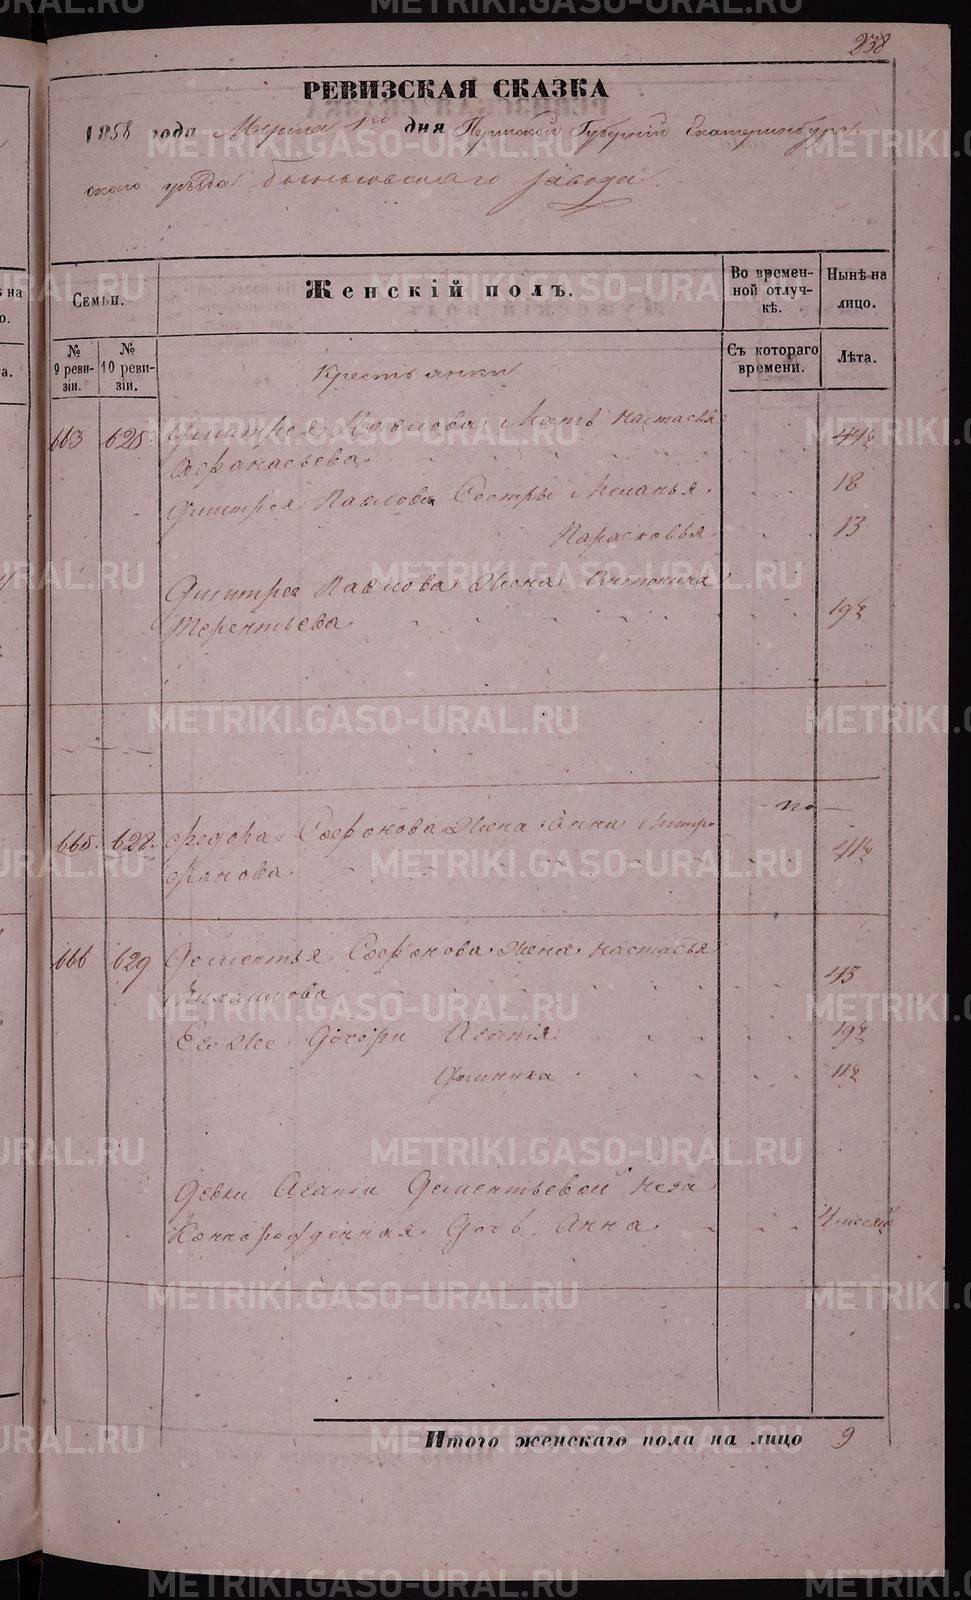 238
РЕВИЗСКАЯ СКАЗКА
1858 года Марта 1го дня Пермской Губернии Екатеринбург-
скаго уѣзда Быньговскаго завода.
Семьи. Женскій полъ. Во времен-ной отлуч-кѣ. Нынѣ на лицо.
№ 9 реви-зіи. № 10 реви-зіи. Съ котораго времени. Лѣта.
Крестьянки
663 625. Дмитрея Павлова Мать Настасья
Афанасьева 44½
Дмитрея Павлова Сестры Меланья 18
Парасковья 13
Дмитрея Павлова Жена Антонида
Терентьева 19½
665. 628. Федора Софронова Жена Анна Митро
фанова 41½
666 629 Дементья Софронова Жена Настасья
Михайлова 43
Его же Дочери Агапія 19½
Домника 11½
Девки Агапіи Дементьевой неза
коннорожденная Дочь Анна 4 месяц
Итого женскаго пола на лицо 9
METRIKI.GASO-URAL.RU